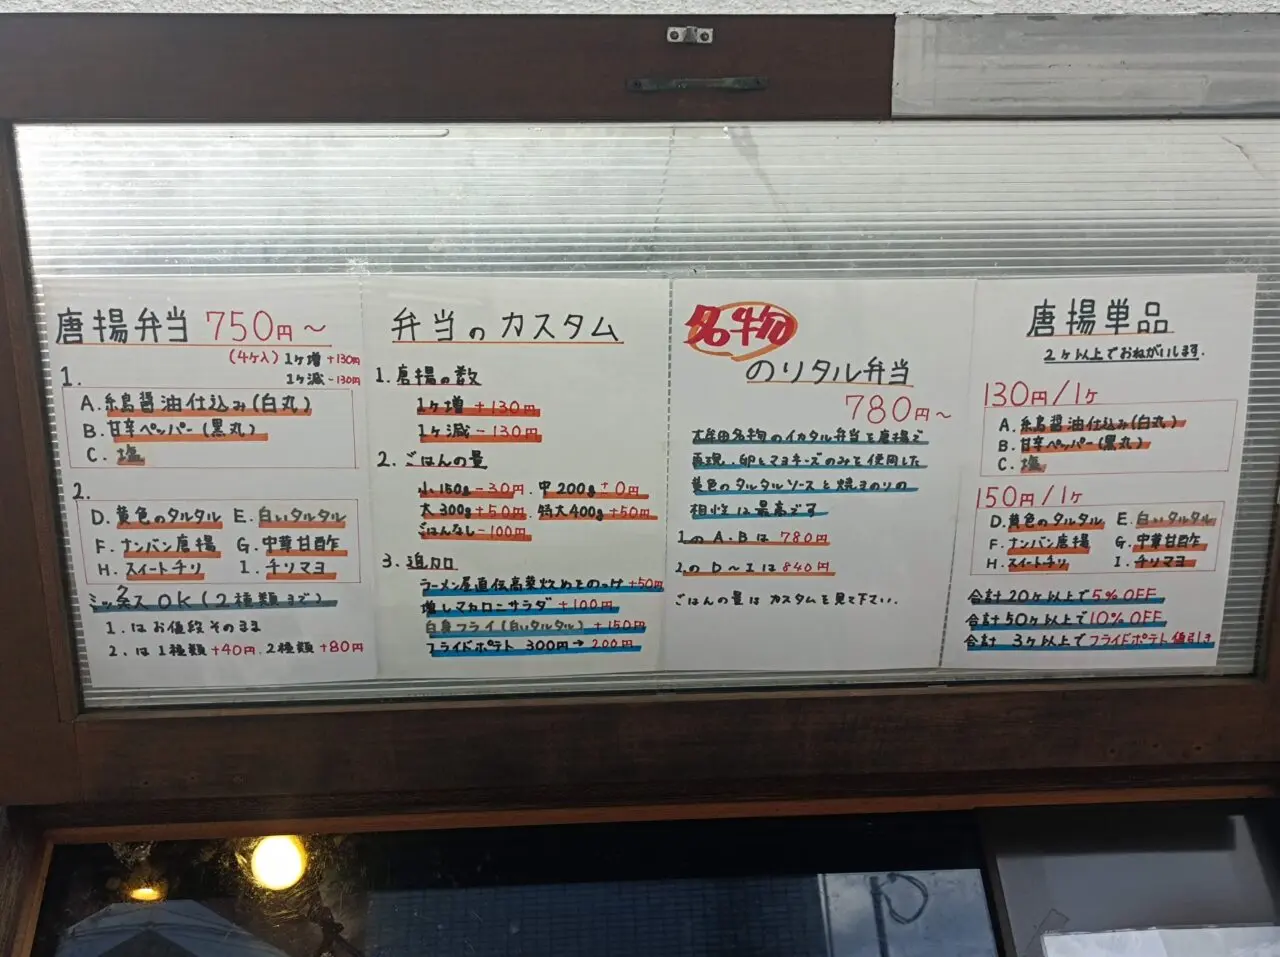 唐揚弁当 750円～
(4ケ入) 1ケ増 +130円
1ケ減 -130円
1.
A. 糸島醤油仕込み(白丸)
B. 甘辛ペッパー(黒丸)
C. 塩
2.
D. 黄色のタルタル E. 白いタルタル
F. ナンバン唐揚 G. 中華甘酢
H. スイートチリ I. チリマヨ
ミックスOK(2種類まで)
1. はお値段そのまま
2. は1種類+40円. 2種類+80円
弁当のカスタム
1. 唐揚の数
1ケ増 +130円
1ケ減 -130円
2. ごはんの量
小150g-30円. 中200g±0円
大300g+50円. 特大400g+50円
ごはんなし-100円
3. 追加
ラーメン屋直伝高菜炒めとのっけ +50円
増しマカロニサラダ +100円
白身フライ(白いタルタル) +150円
フライドポテト 300円→200円
名物
のりタル弁当
780円～
大牟田名物のイカタル弁当を唐揚で
再現. 卵とマヨネーズのみを使用した
黄色のタルタルソースと焼きのりの
相性は最高です
1のA.Bは 780円
2のD～Iは 840円
ごはんの量はカスタムを見て下さい.
唐揚単品
2ケ以上でおねがいします.
130円/1ケ
A. 糸島醤油仕込み(白丸)
B. 甘辛ペッパー(黒丸)
C. 塩
150円/1ケ
D. 黄色のタルタル E. 白いタルタル
F. ナンバン唐揚 G. 中華甘酢
H. スイートチリ I. チリマヨ
合計20ケ以上で5%OFF
合計50ケ以上で10%OFF
合計 3ケ以上でフライドポテト値引き